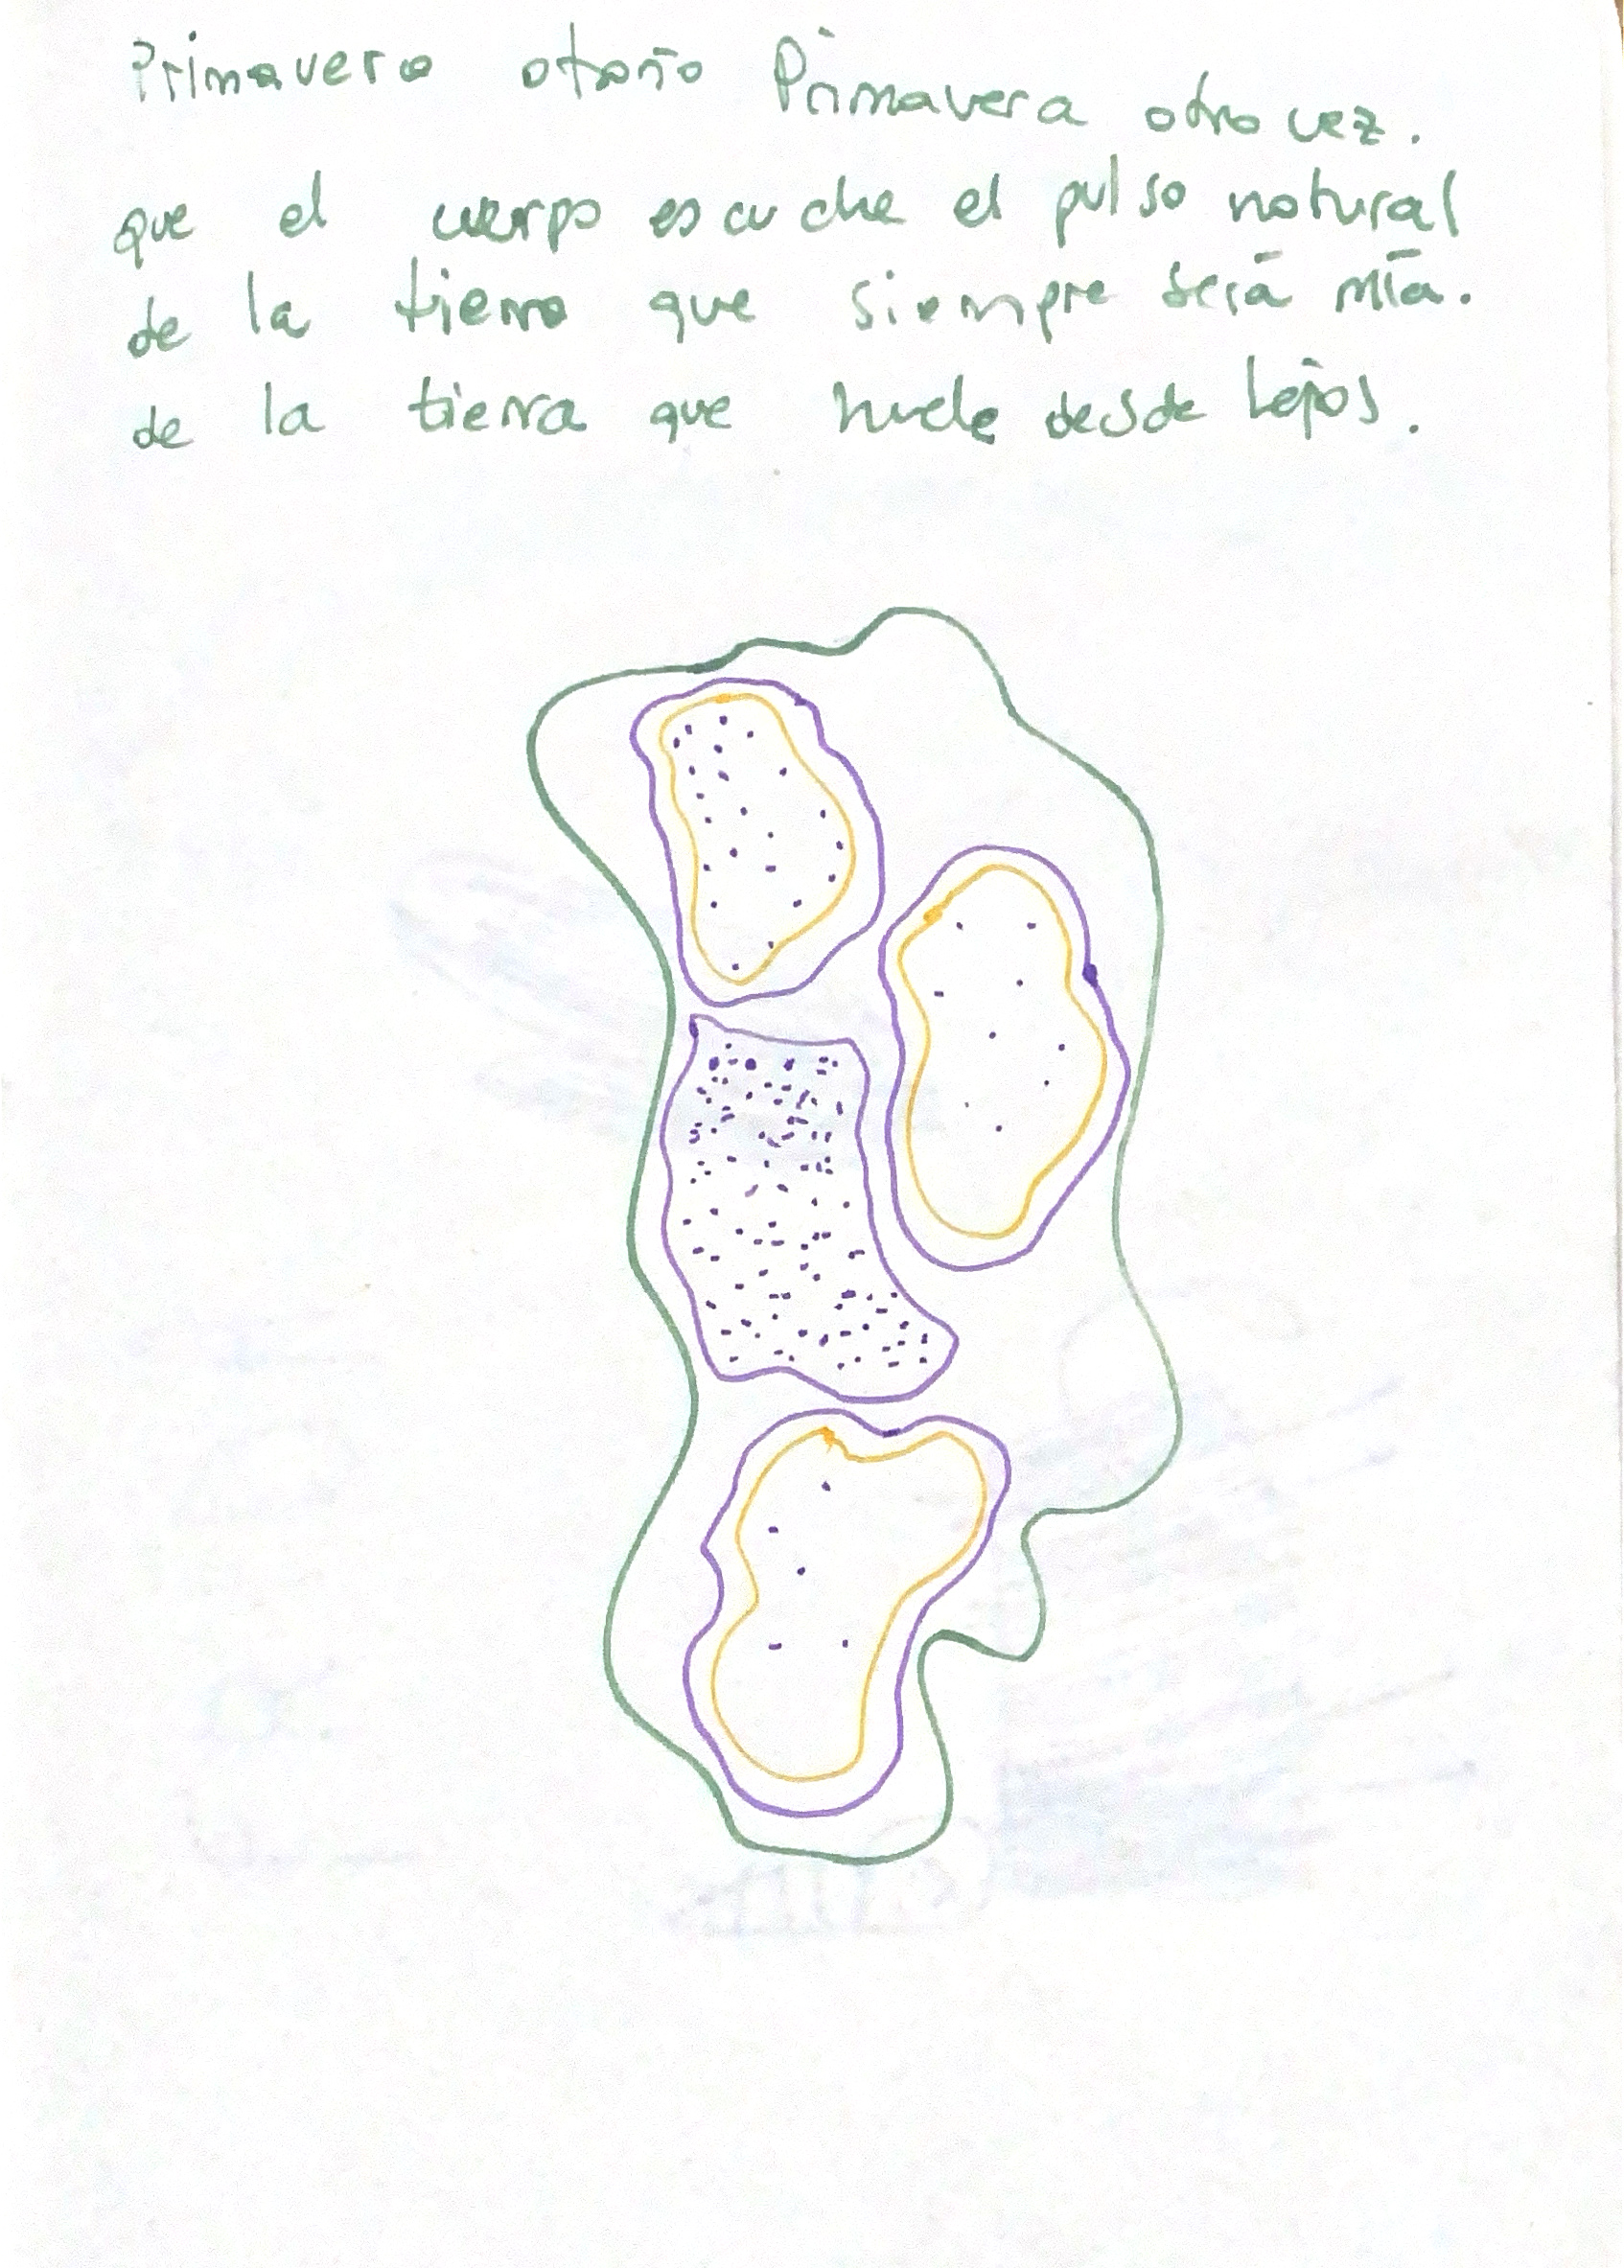 Primavera otoño Primavera otra vez.
que el cuerpo escuche el pulso natural
de la tierra que siempre será mía.
de la tierra que huele desde lejos.